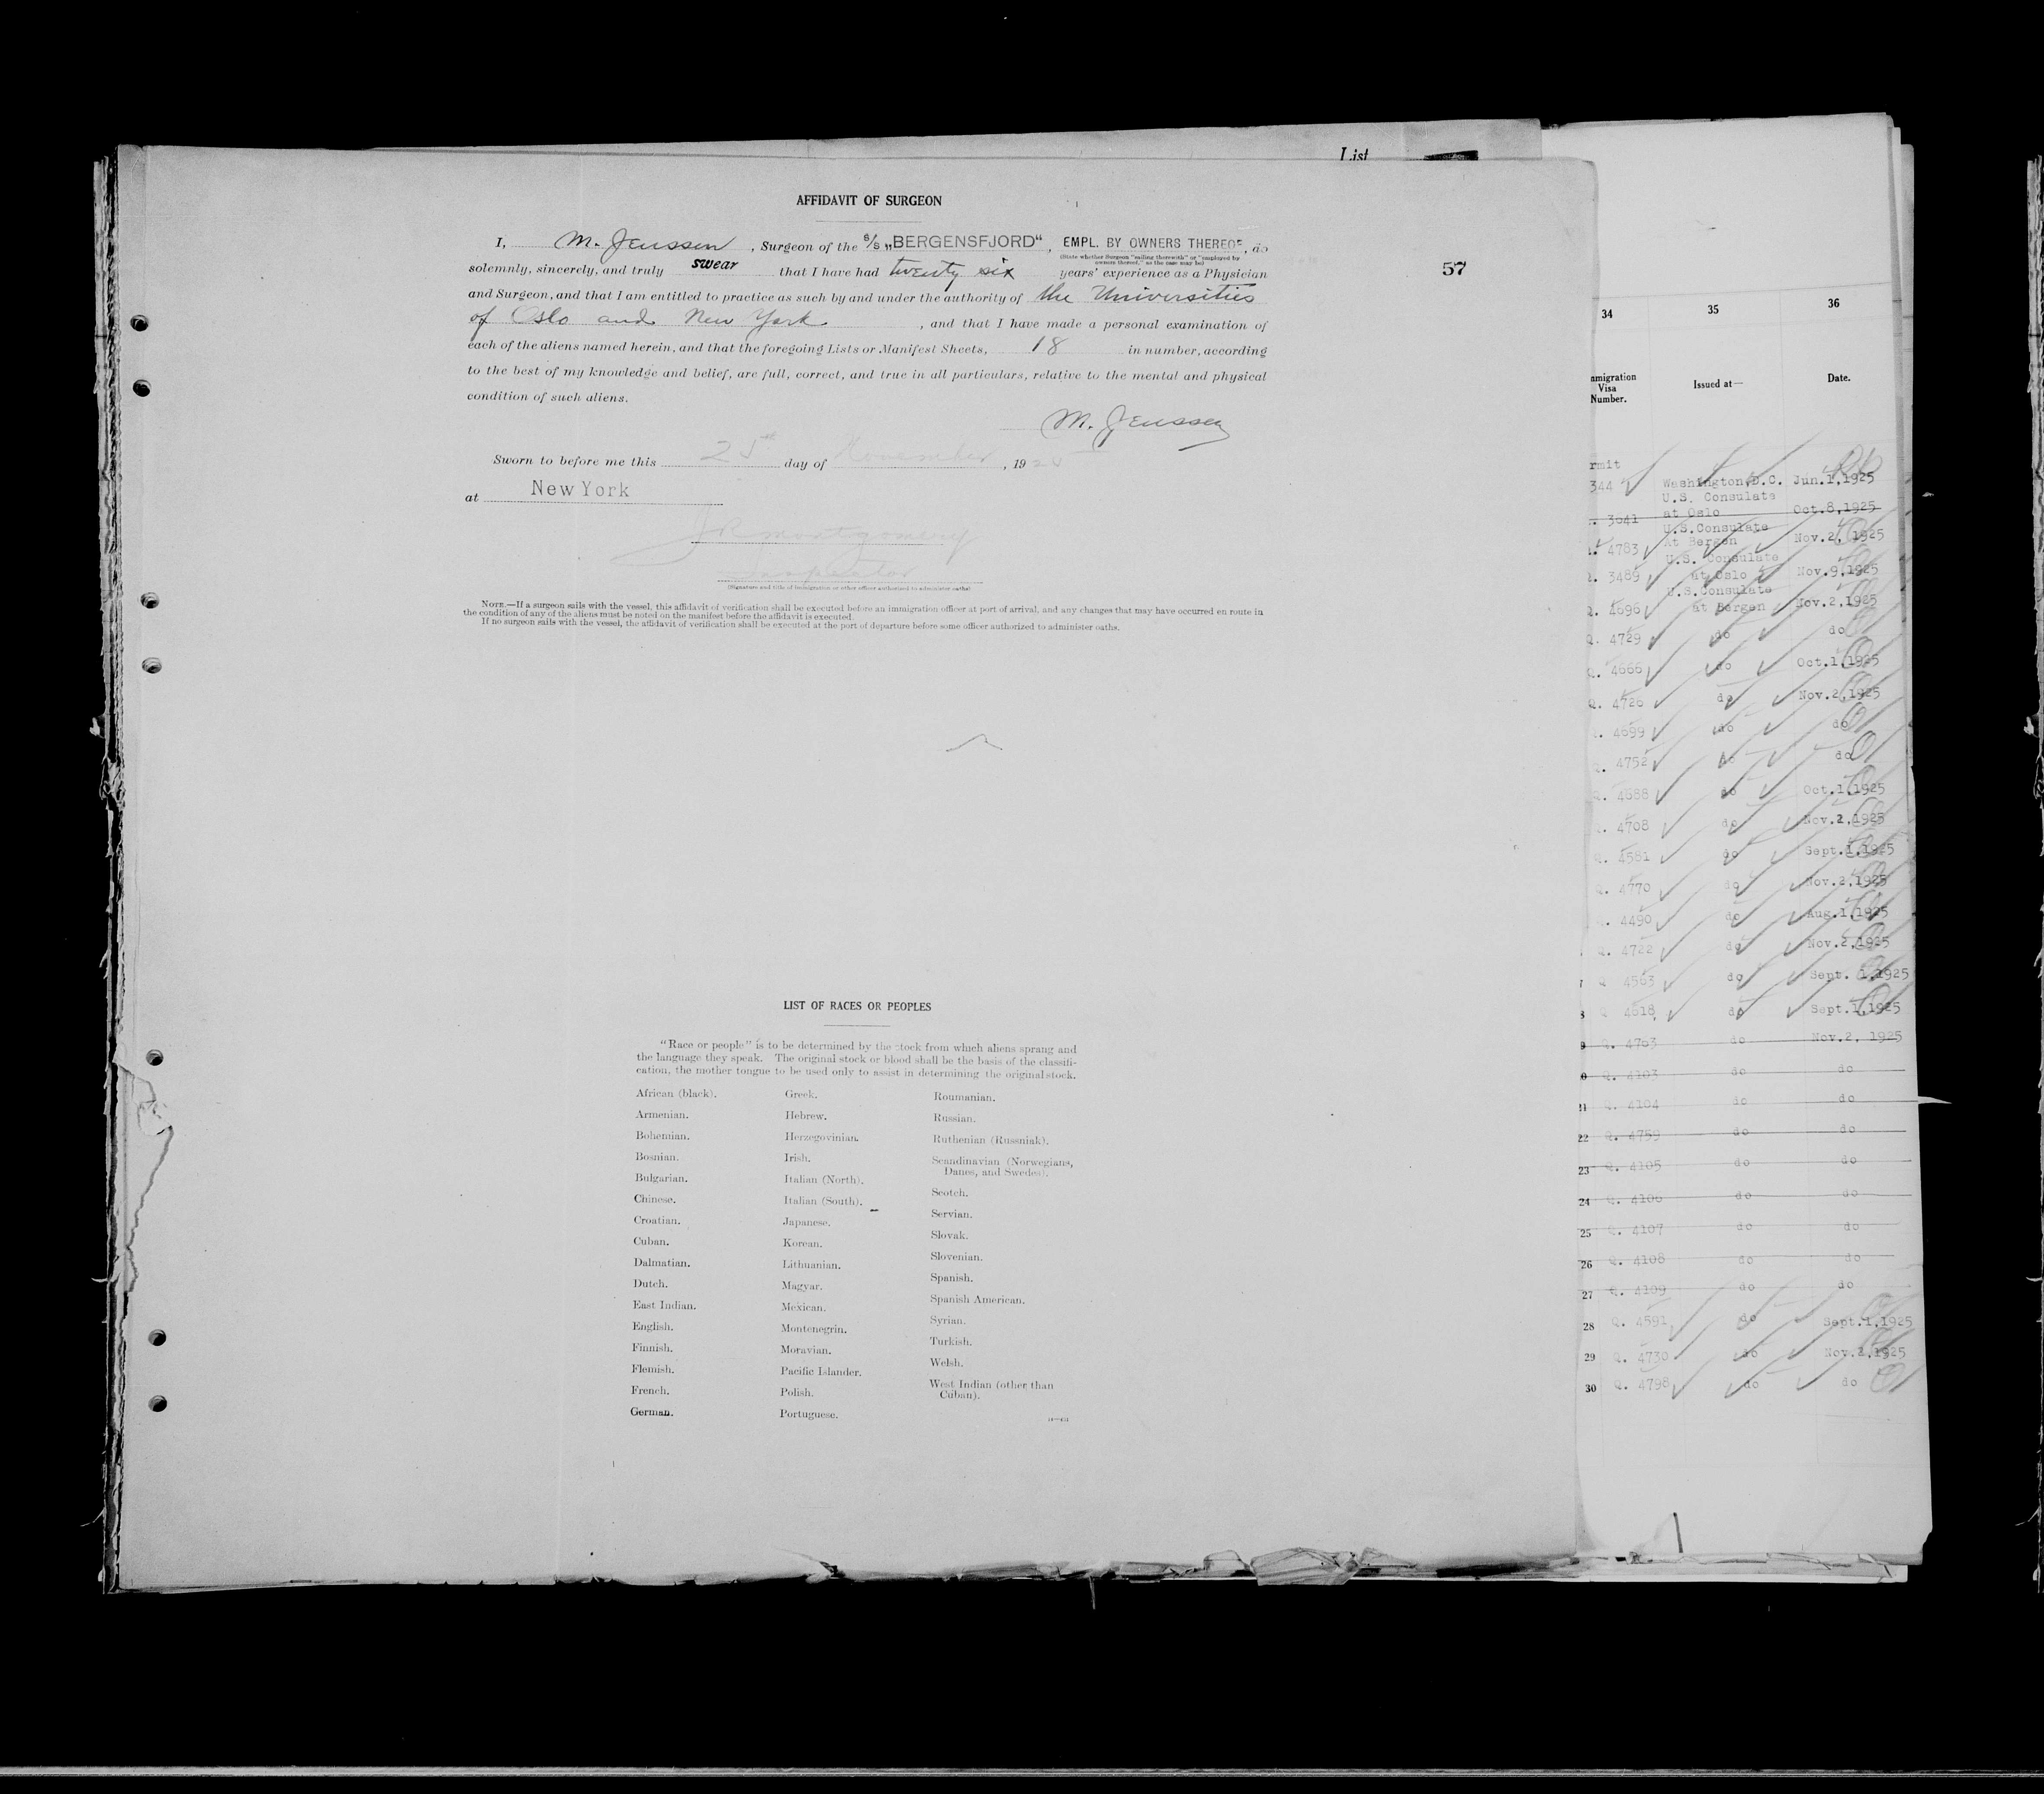 List
AFFIDAVIT OF SURGEON
I, M. Jenssen, Surgeon of the S/S „BERGENSFJORD“, EMPL. BY OWNERS THEREOF, do
(State whether Surgeon "sailing therewith" or "employed by
owners thereof," as the case may be)
solemnly, sincerely, and truly swear that I have had twenty six years' experience as a Physician
57
and Surgeon, and that I am entitled to practice as such by and under the authority of the Universities
of Oslo and New York, and that I have made a personal examination of
each of the aliens named herein, and that the foregoing Lists or Manifest Sheets, 18 in number, according
to the best of my knowledge and belief, are full, correct, and true in all particulars, relative to the mental and physical
condition of such aliens.
M. Jenssen
Sworn to before me this 25th day of November, 1925
at New York
J R Montgomery
Inspector
(Signature and title of immigration or other officer authorized to administer oaths)
NOTE.—If a surgeon sails with the vessel, this affidavit of verification shall be executed before an immigration officer at port of arrival, and any changes that may have occurred en route in
the condition of any of the aliens must be noted on the manifest before the affidavit is executed.
If no surgeon sails with the vessel, the affidavit of verification shall be executed at the port of departure before some officer authorized to administer oaths.
LIST OF RACES OR PEOPLES
"Race or people" is to be determined by the stock from which aliens sprang and
the language they speak. The original stock or blood shall be the basis of the classifi-
cation, the mother tongue to be used only to assist in determining the original stock.
African (black).
Armenian.
Bohemian.
Bosnian.
Bulgarian.
Chinese.
Croatian.
Cuban.
Dalmatian.
Dutch.
East Indian.
English.
Finnish.
Flemish.
French.
German.
Greek.
Hebrew.
Herzegovinian.
Irish.
Italian (North).
Italian (South).
Japanese.
Korean.
Lithuanian.
Magyar.
Mexican.
Montenegrin.
Moravian.
Pacific Islander.
Polish.
Portuguese.
Roumanian.
Russian.
Ruthenian (Russniak).
Scandinavian (Norwegians,
Danes, and Swedes).
Scotch.
Servian.
Slovak.
Slovenian.
Spanish.
Spanish American.
Syrian.
Turkish.
Welsh.
West Indian (other than
Cuban).
34 35 36
mmigration
Visa
Number.
Issued at—
Date.
rmit
344 Washington,D.C. Jun.1,1925
U.S. Consulate
. 3641 at Oslo Oct.8,1925
U.S.Consulate
. 4783 At Bergen Nov.2, 1925
U.S. Consulate
. 3489 at Oslo Nov.9,1925
U.S.Consulate
Q. 4696 at Bergen Nov.2,1925
Q. 4729 do do
Q. 4666 do Oct.1,1925
Q. 4726 do Nov.2,1925
. 4699 do do
. 4752 do do
Q. 4688 do Oct.1,1925
. 4708 do Nov.2,1925
Q. 4581 do Sept.1,1925
Q. 4770 do Nov.2,1925
. 4490 do Aug.1,1925
Q. 4722 do Nov.2,1925
7 Q 4563 do Sept. 1,1925
8 Q 4618 do Sept.1,1925
9 Q. 4763 do Nov.2, 1925
0 Q. 4103 do do
21 Q. 4104 do do
22 Q. 4759 do do
23 Q. 4105 do do
24 Q. 4106 do do
25 Q. 4107 do do
26 Q. 4108 do do
27 Q. 4109 do do
28 Q. 4591 do Sept.1,1925
29 Q. 4730 do Nov.2,1925
30 Q. 4798 do do